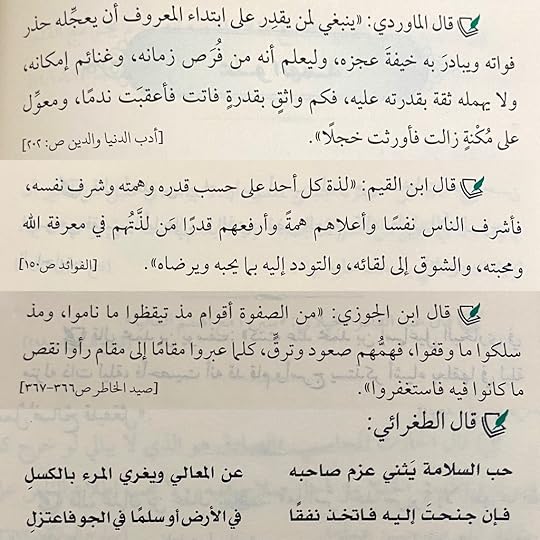 قال الماوردي: «ينبغي لمن يقدِر على ابتداء المعروف أن يعجِّله حذر
فواته ويبادرَ به خيفةَ عجزه، وليعلم أنه من فُرَص زمانه، وغنائم إمكانه،
ولا يهمله ثقة بقدرته عليه، فكم واثقٍ بقدرةٍ فاتت فأعقبَت ندمًا، ومعوِّل
على مُكْنةٍ زالت فأورثت خجلًا». [أدب الدنيا والدين ص: ٢٠٢]
قال ابن القيم: «لذة كل أحد على حسب قدره وهمته وشرف نفسه،
فأشرف الناس نفسًا وأعلاهم همةً وأرفعهم قدرًا مَن لذَّتُهم في معرفة الله
ومحبته، والشوق إلى لقائه، والتودد إليه بما يحبه ويرضاه». [الفوائد ص١٥٠]
قال ابن الجوزي: «من الصفوة أقوام مذ تيقظوا ما ناموا، ومذ
سلكوا ما وقفوا، فهمُّهم صعود وترقٍّ، كلما عبروا مقامًا إلى مقام رأوا نقص
ما كانوا فيه فاستغفروا». [صيد الخاطر ص٣٦٦-٣٦٧]
قال الطغرائي:
حب السلامة يَثني عزم صاحبه عن المعالي ويغري المرء بالكسلِ
فإن جنحتَ إليه فاتخذ نفقًا في الأرض أو سلمًا في الجو فاعتزلِ